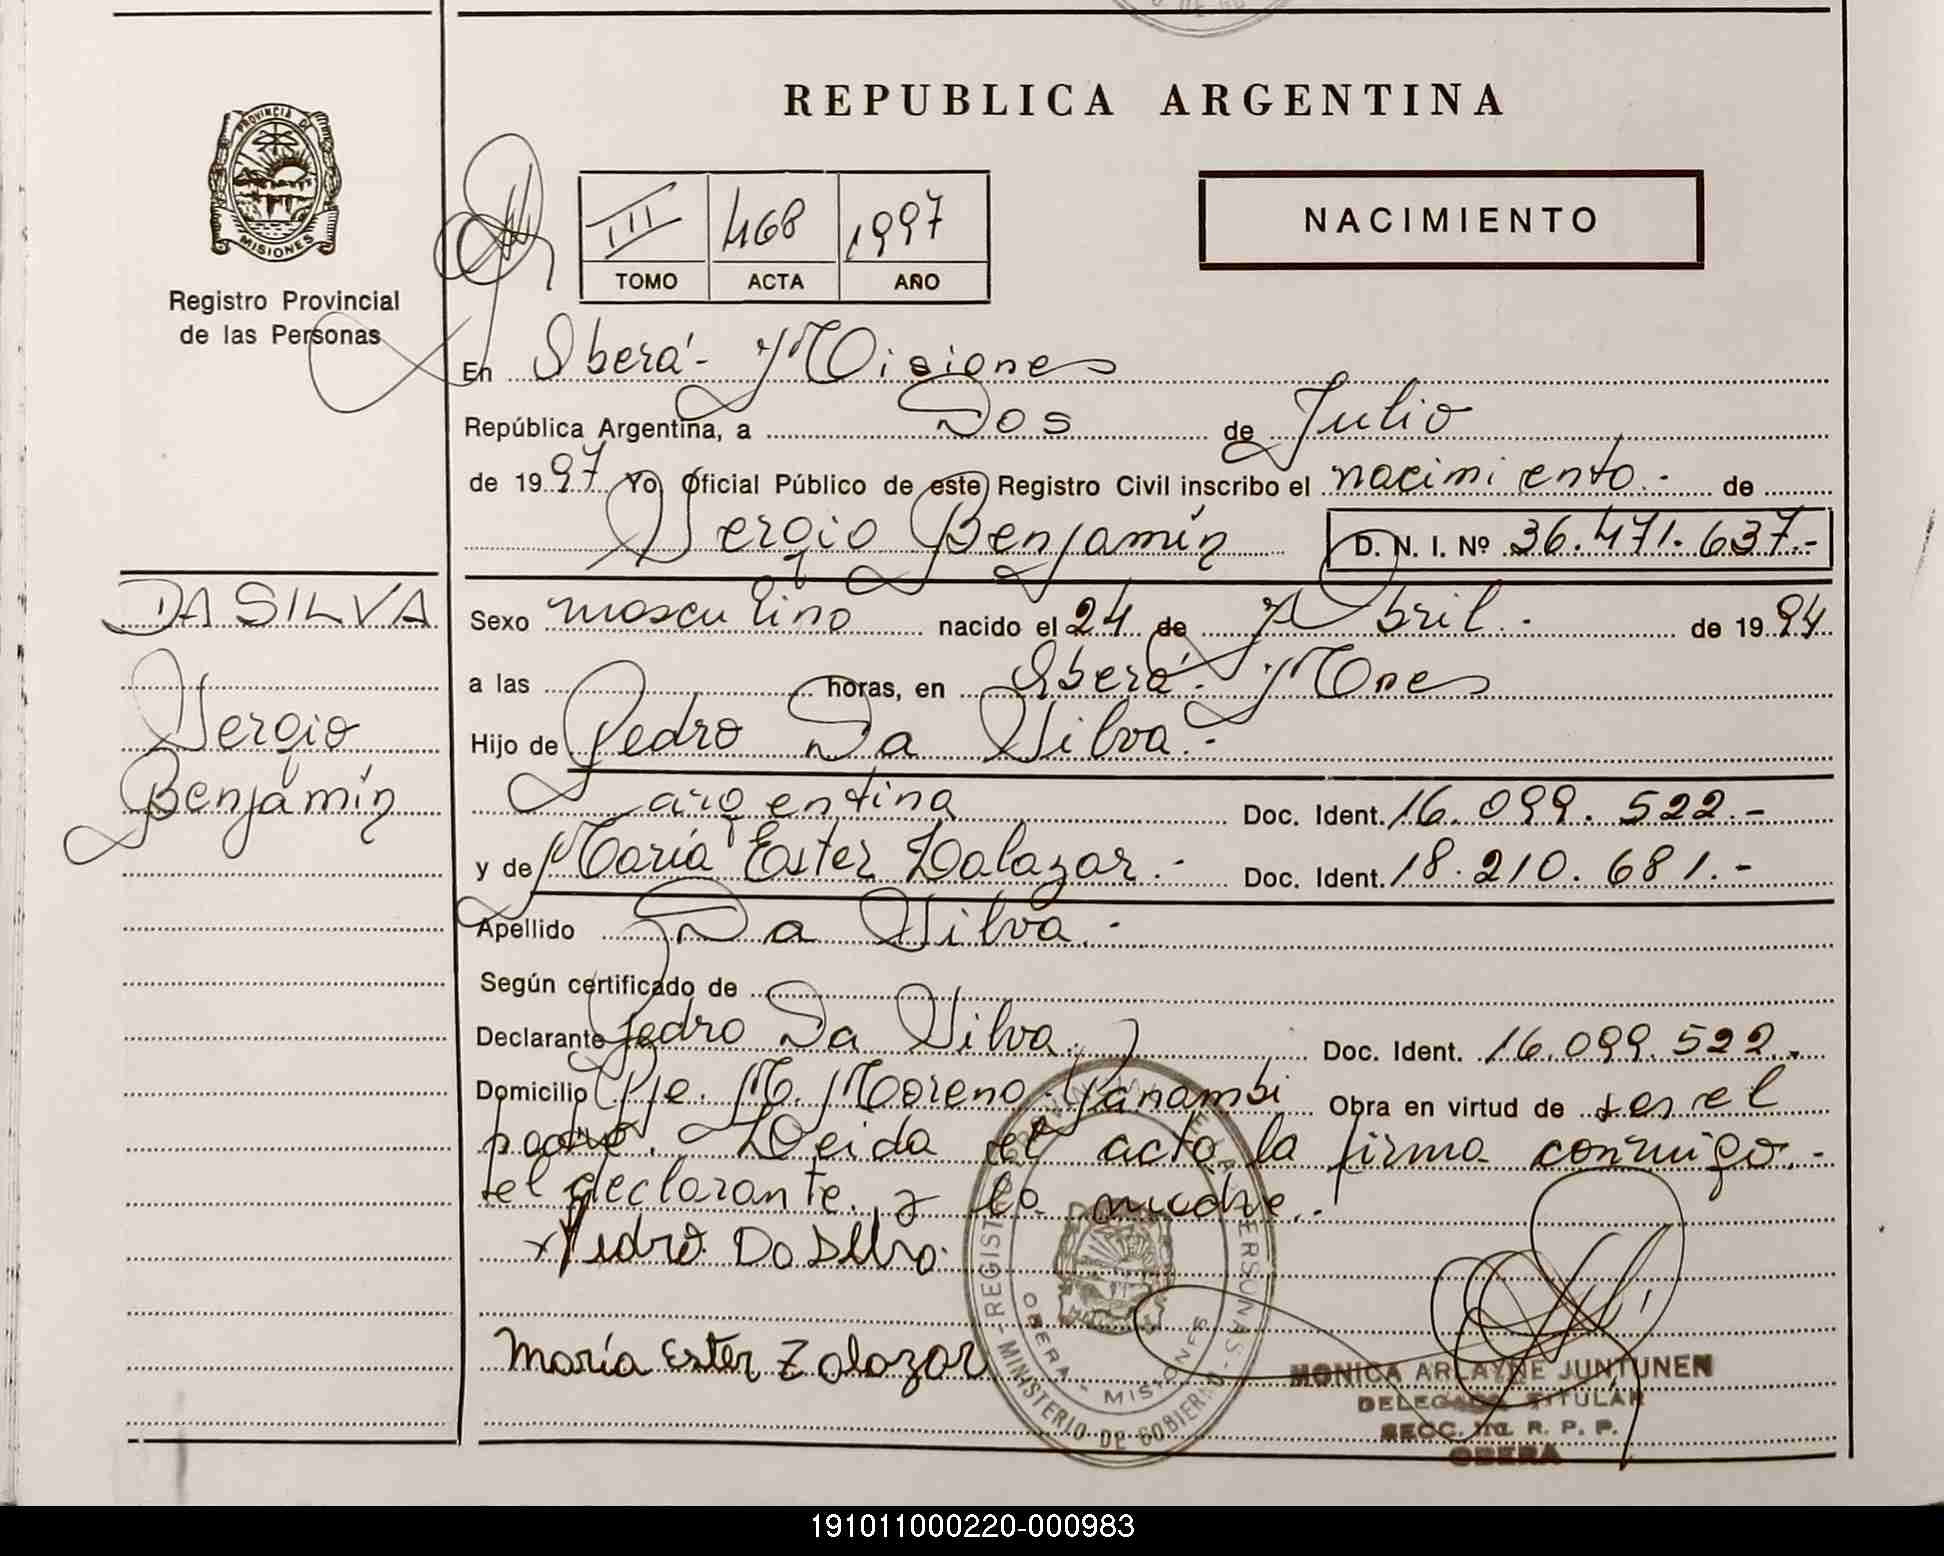 REPUBLICA ARGENTINA
PROVINCIA DE MISIONES
Registro Provincial
de las Personas
III 468 1997
TOMO ACTA AÑO
NACIMIENTO
En Oberá - Misiones
República Argentina, a Dos de Julio
de 1997 Yo Oficial Público de este Registro Civil inscribo el nacimiento.- de
Sergio Benjamín D. N. I. Nº 36.471.637.-
DA SILVA
Sergio
Benjamín
Sexo masculino nacido el 24 de Abril.- de 1994
a las horas, en Oberá - Mnes
Hijo de Pedro Da Silva.-
argentina Doc. Ident. 16.099.522.-
y de María Ester Zalazar.- Doc. Ident. 18.210.681.-
Apellido Da Silva.-
Según certificado de
Declarante Pedro Da Silva. Doc. Ident. 16.099.522.
Domicilio Pje. M. Moreno. Panambi Obra en virtud de ser el
padre. Leida el acta la firma conmigo.-
el declarante y la madre.-
x Pedro Da Silva.
María Ester Zalazar
REGISTRO DE LAS PERSONAS - MINISTERIO DE GOBIERNO
OBERA - MISIONES
MONICA ARLAYNE JUNTUNEN
DELEGADA TITULAR
SECC. R. P. P.
OBERA
191011000220-000983